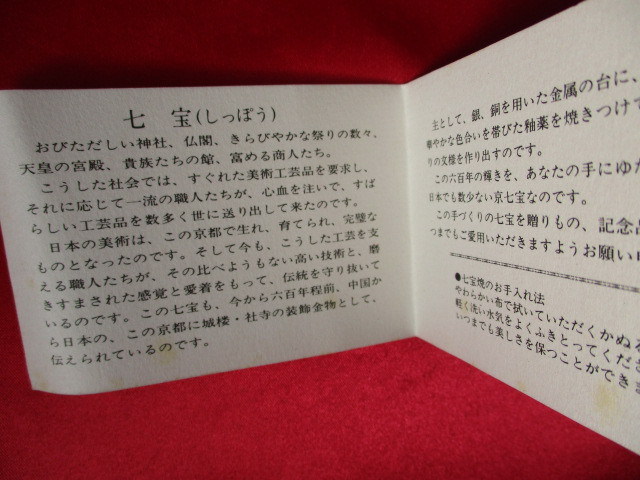 七 宝(しっぽう)
おびただしい神社、仏閣、きらびやかな祭りの数々、
天皇の宮殿、貴族たちの館、富める商人たち。
こうした社会では、すぐれた美術工芸品を要求し、
それに応じて一流の職人たちが、心血を注いで、すば
らしい工芸品を数多く世に送り出して来たのです。
日本の美術は、この京都で生れ、育てられ、完璧な
ものとなったのです。そして今も、こうした工芸を支
える職人たちが、その比べようもない高い技術と、磨
きすまされた感覚と愛着をもって、伝統を守り抜いて
いるのです。この七宝も、今から六百年程前、中国か
ら日本の、この京都に城楼・社寺の装飾金物として、
伝えられているのです。
主として、銀、銅を用いた金属の台に、
華やかな色合いを帯びた釉薬を焼きつけて
りの文様を作り出すのです。
この六百年の輝きを、あなたの手にゆだ
日本でも数少ない京七宝なのです。
この手づくりの七宝を贈りもの、記念品
つまでもご愛用いただきますようお願い申
●七宝焼のお手入れ法
やわらかい布で拭いていただくかぬる
軽く洗い水気をよくふきとってくださ
いつまでも美しさを保つことができま